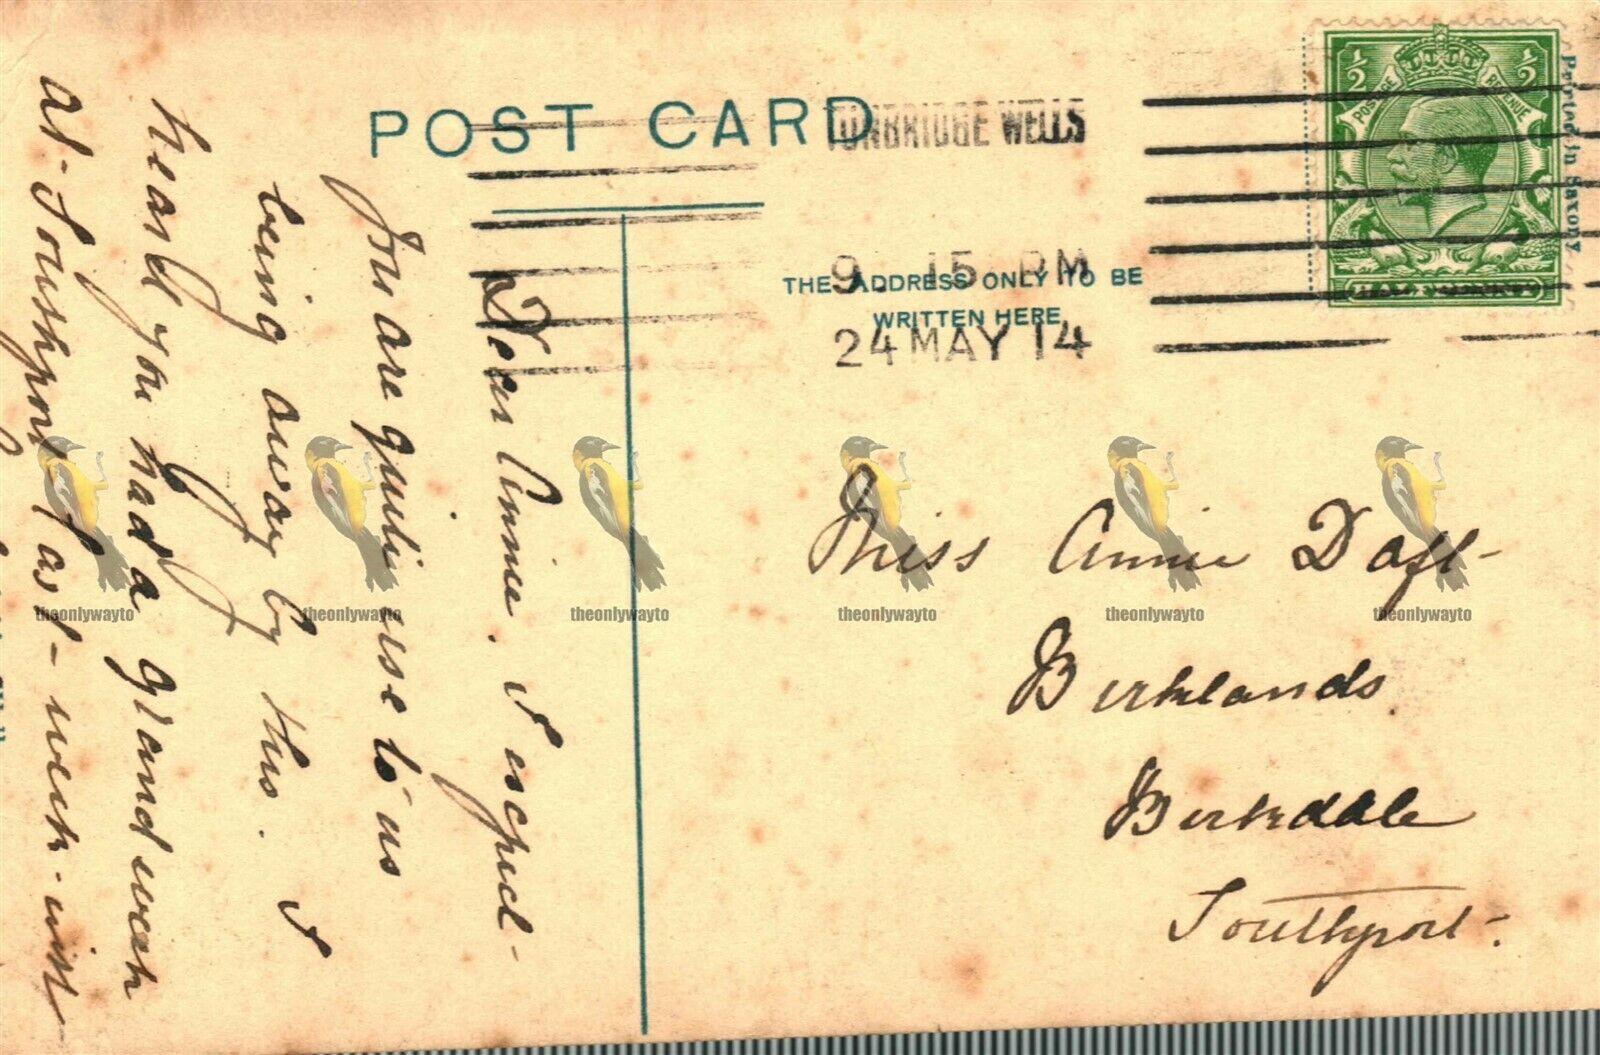 POST CARD
TUNBRIDGE WELLS
9. 15 PM
24 MAY 14
THE ADDRESS ONLY TO BE
WRITTEN HERE
½ ½
POSTAGE REVENUE
Printed in Saxony
Miss Annie Daft
Birklands
Birkdale
Southport.
Dear Annie. I expect
You are quite use to us
being away by this. I
heard you had a grand week
at Southport last week. wish
theonlywayto theonlywayto theonlywayto theonlywayto theonlywayto theonlywayto